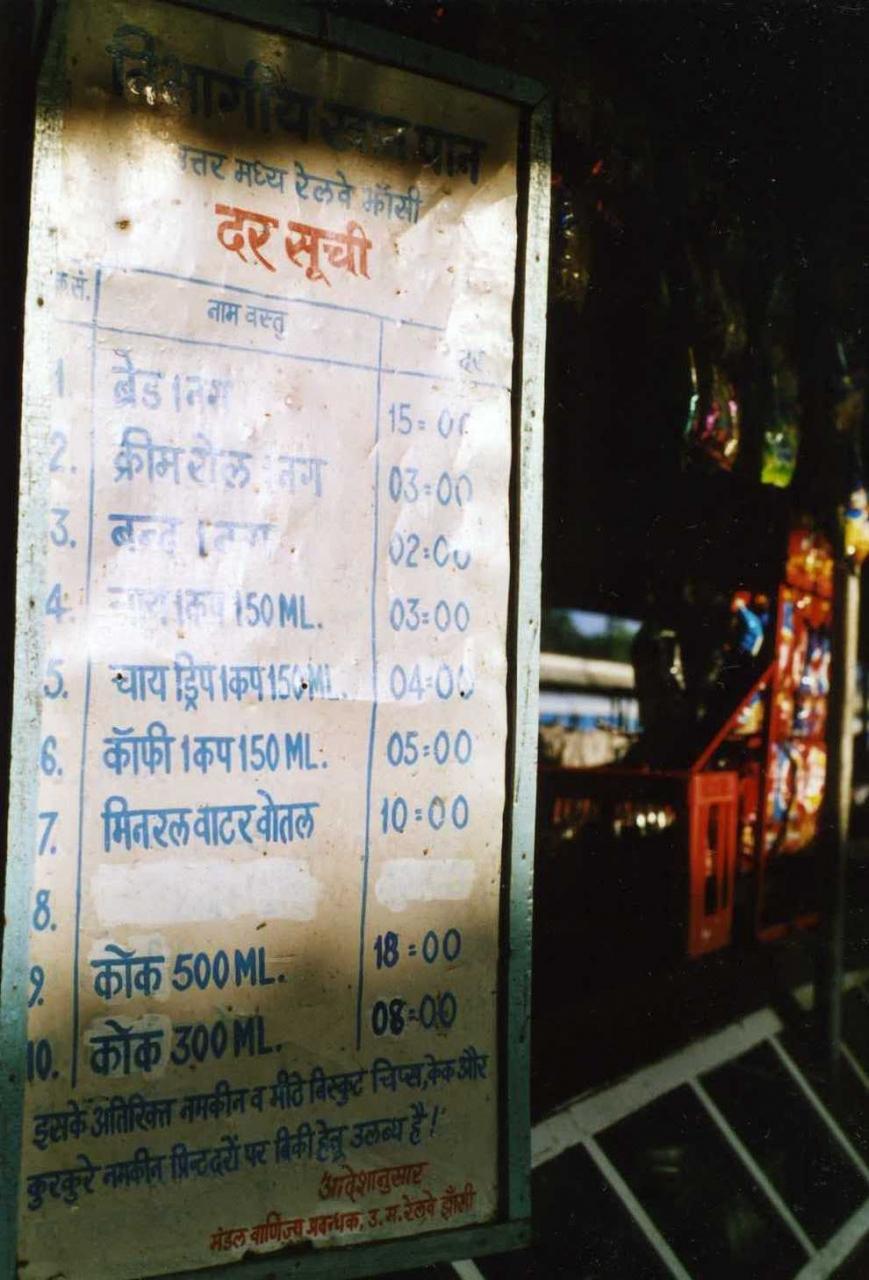 विभागीय खान पान
उत्तर मध्य रेलवे झाँसी
दर सूची
क्र.सं. नाम वस्तु दर
1 ब्रेड 1 नग 15=00
2. क्रीम रोल 1 नग 03=00
3. बन्द 1 नग 02=00
4. चाय 1 कप 150 ML. 03=00
5. चाय ड्रिप 1 कप 150 ML. 04=00
6. कॉफी 1 कप 150 ML. 05=00
7. मिनरल वाटर वोतल 10=00
8.
9. कॉक 500 ML. 18=00
10. कॉक 300 ML. 08=00
इसके अतिरिक्त नमकीन व मीठे बिस्कुट चिप्स,केक और
कुरकुरे नमकीन प्रिन्ट दरों पर बिकी हेतू उलब्ध है!
आदेशानुसार
मंडल वाणिज्य प्रबन्धक, उ.म.रेलवे झाँसी